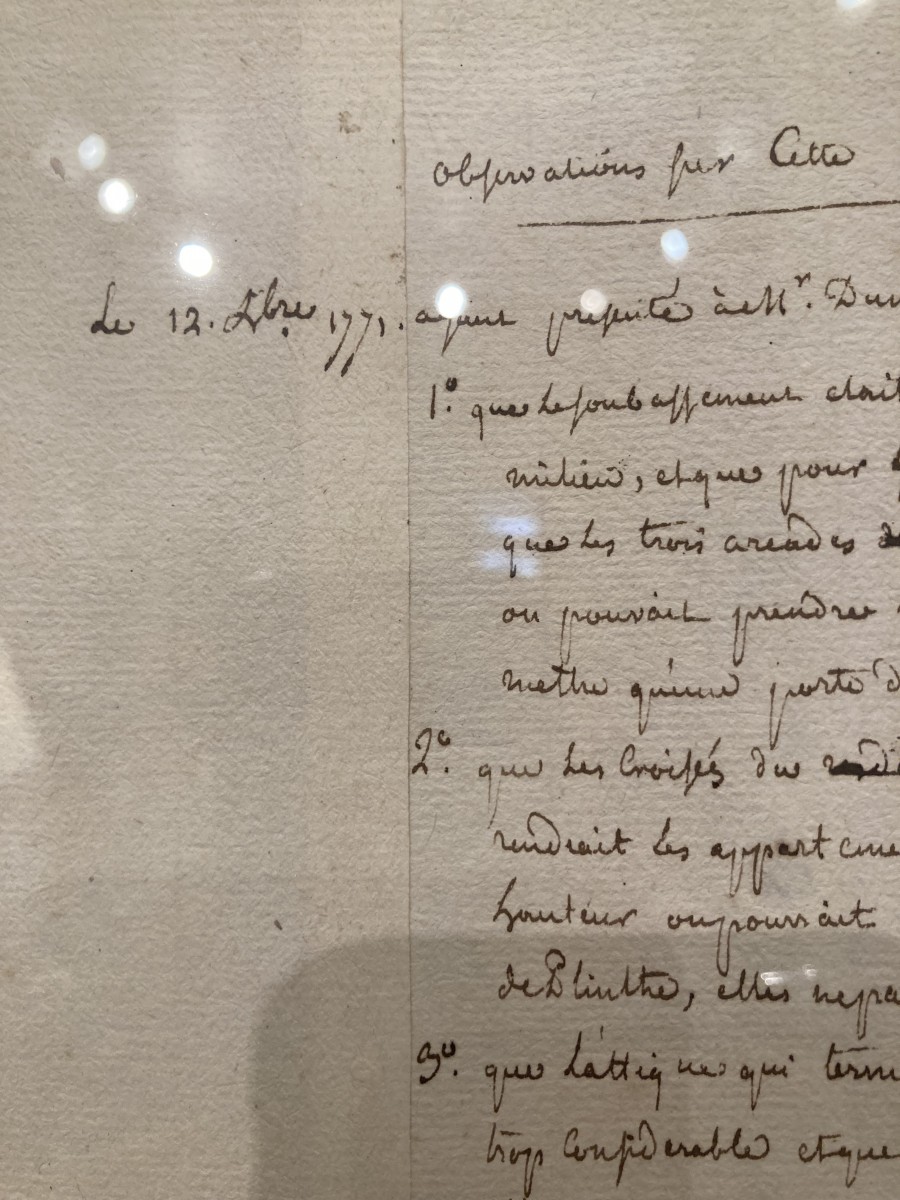 observations sur Cette
Le 12. Xbre 1771. ayant présenté à Mr. Du
1º. que Le soubassement etait
milieu, et que pour
que Les trois arcades
on pouvait prendre
mettre qu'une porte d
2º. que Les Croisés du
rendrait Les apparteme
hauteur on pourrait
de Plinthe, elles ne pa
3º. que L'attique qui term
trop Considerable et que